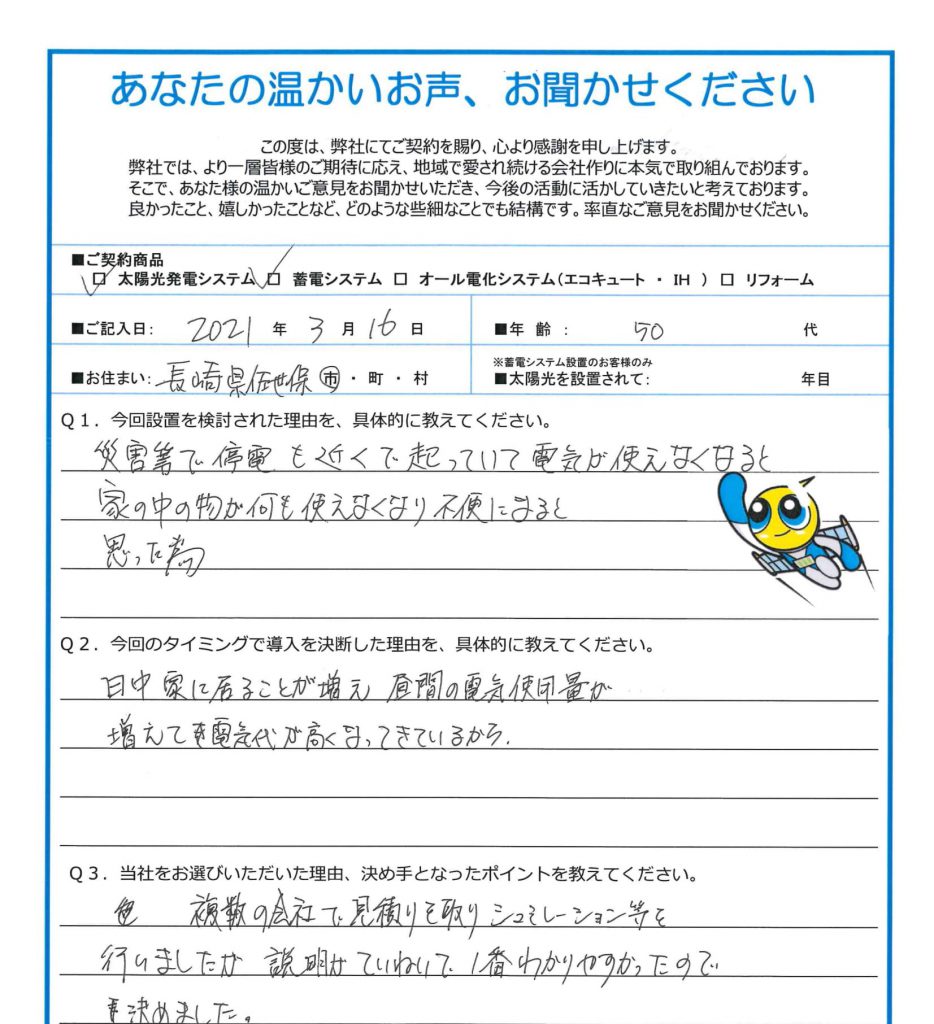 あなたの温かいお声、お聞かせください
この度は、弊社にてご契約を賜り、心より感謝を申し上げます。
弊社では、より一層皆様のご期待に応え、地域で愛され続ける会社作りに本気で取り組んでおります。
そこで、あなた様の温かいご意見をお聞かせいただき、今後の活動に活かしていきたいと考えております。
良かったこと、嬉しかったことなど、どのような些細なことでも結構です。率直なご意見をお聞かせください。
■ご契約商品
☑ 太陽光発電システム ☑ 蓄電システム □ オール電化システム(エコキュート ・ IH ) □ リフォーム
■ご記入日: 2021 年 3 月 16 日 ■年 齢 : 50 代
※蓄電システム設置のお客様のみ
■お住まい: 長崎県佐世保 市 ・ 町 ・ 村 ■太陽光を設置されて: 年目
Q1. 今回設置を検討された理由を、具体的に教えてください。
災害等で停電も近くで起っていて電気が使えなくなると
家の中の物が何も使えなくなり不便になると
思った為
Q2. 今回のタイミングで導入を決断した理由を、具体的に教えてください。
日中家に居ることが増え 昼間の電気使用量が
増えて電気代が高くなってきているから.
Q3. 当社をお選びいただいた理由、決め手となったポイントを教えてください。
複数の会社で見積りを取りシュミレーション等を
行いましたが 説明がていねいで 1番わかりやすかったので
決めました。